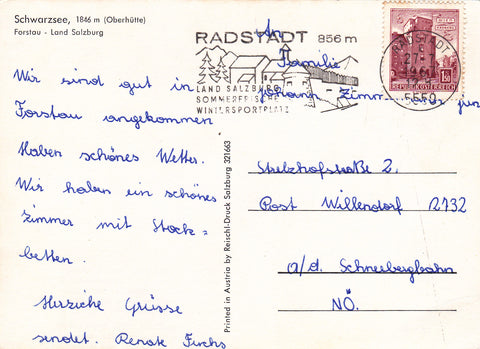 Schwarzsee, 1846 m (Oberhütte)
Forstau - Land Salzburg
Wir sind gut in
Forstau angekommen
Haben schönes Wetter.
Wir haben ein schönes
Zimmer mit Stock=
betten.
Herziche Grüsse
sendet. Renate Fuchs
Printed in Austria by Reichl-Druck Salzburg 321663
RADSTADT 856 m
LAND SALZBURG
SOMMERFRISCHE
WINTERSPORTPLATZ
RADSTADT
5550
REPUBLIK ÖSTERREICH
An
Familie
Johann jun
Stelzhofstraße 2.
Post Willendorf 2732
a/d. Schneebergbahn
NÖ.